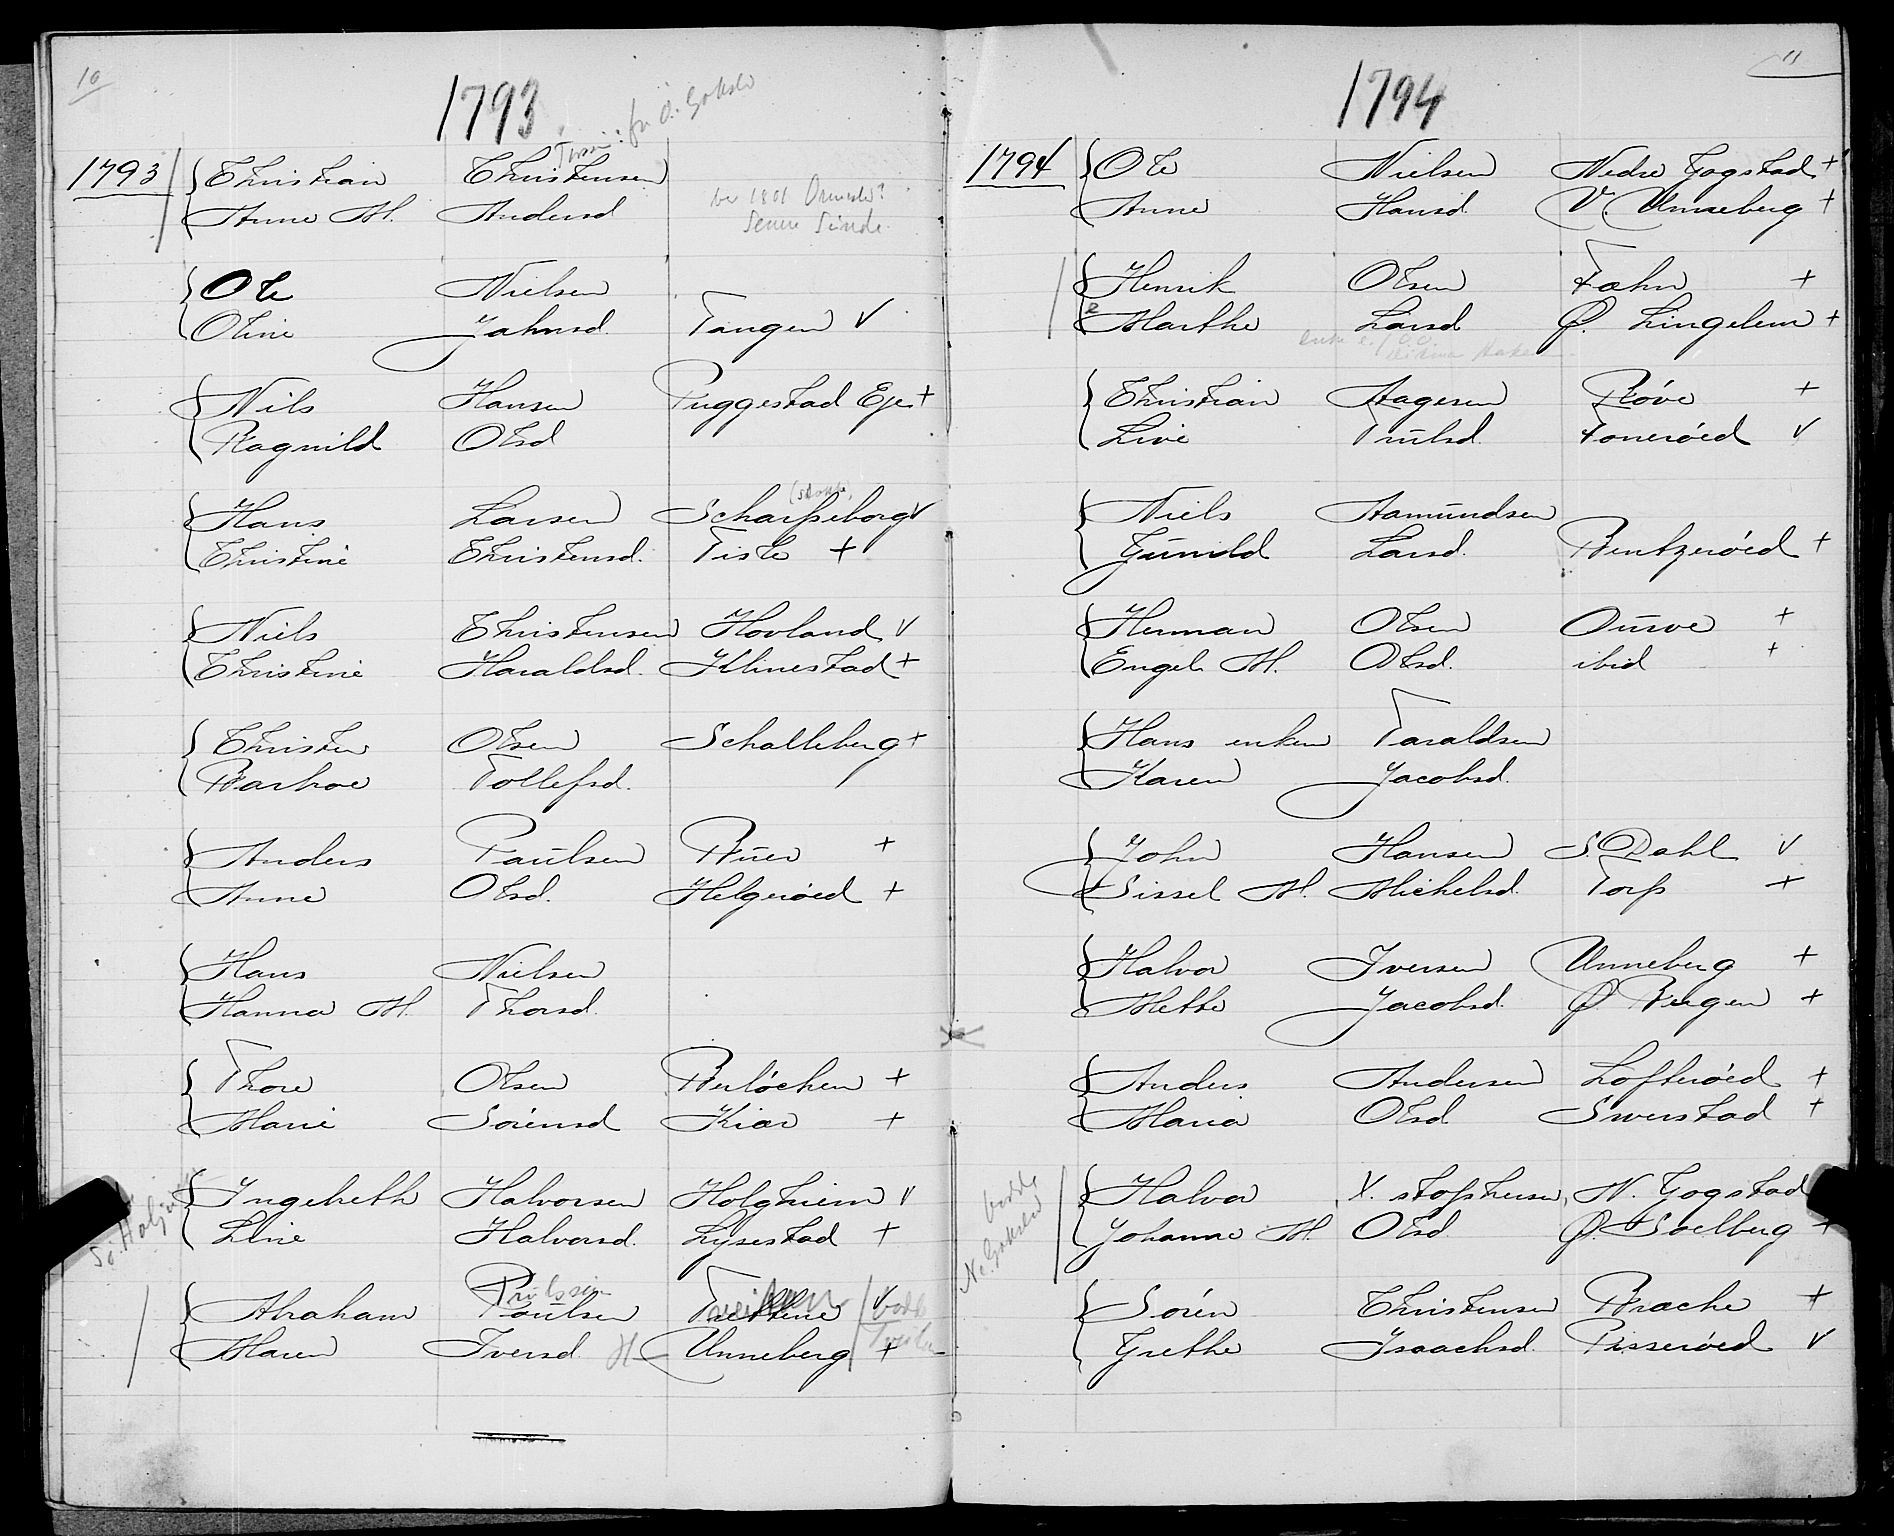 10
1793
fra Ø. Gokslv
1793 Christian Christensen
Anne M. Andersd
1801
Senere Sünde
Ole Nielsen
Oline Jahnsd. Tangen V
Nils Hansen Puggestad Eje +
Ragnild Olsd
(Stokke)
Hans Larsen Scharpseborg V
Christine Christensd. Tiste +
Niels Christensen Hovland V
Christine Haraldsd. Klinestad +
Christen Olsen Schalleberg +
Barboe Tollefsd.
Anders Paulsen Buer +
Anne Olsd. Helgerøed +
Hans Nielsen
Hanna M. Thorsd.
Thore Olsen Berløchen +
Marie Sørensd Kiær +
Ingebreth Halvorsen Holghiem V
Line Halvorsd. Lysestad +
Abraham Poulsen V
Maren Iversd. Unneberg +
11
1794
1794 Ole Nielsen Nedre Gogstad +
Anne Hansd. V. Unneberg +
Henrik Olsen Fæhn +
2 Marthe Larsd Ø. Lingelem +
Christian Aagesen Røve +
Live Trulsd. Fonerøed V
Niels Aamundsen
Gunild Larsd. Bentzerøed +
Herman Olsen Ourve +
Engel M. Olsd. ibid +
Hans enken Taraldsen
Karen Jacobsd.
John Hansen S. Dahl V
Sissel M. Michelsd. Torp +
Halvor Iversen Unneberg +
Methe Jacobsd. Ø. Bugen +
Anders Andersen Lofterøed +
Maria Olsd Sverstad +
bodde
N. Gokslv
Halvor X. stophersen, N. Gogstad
Johanne M. Olsd Ø. Soelberg +
Soren Christensen Brache +
Grethe Isaachsd. Pisserøed V